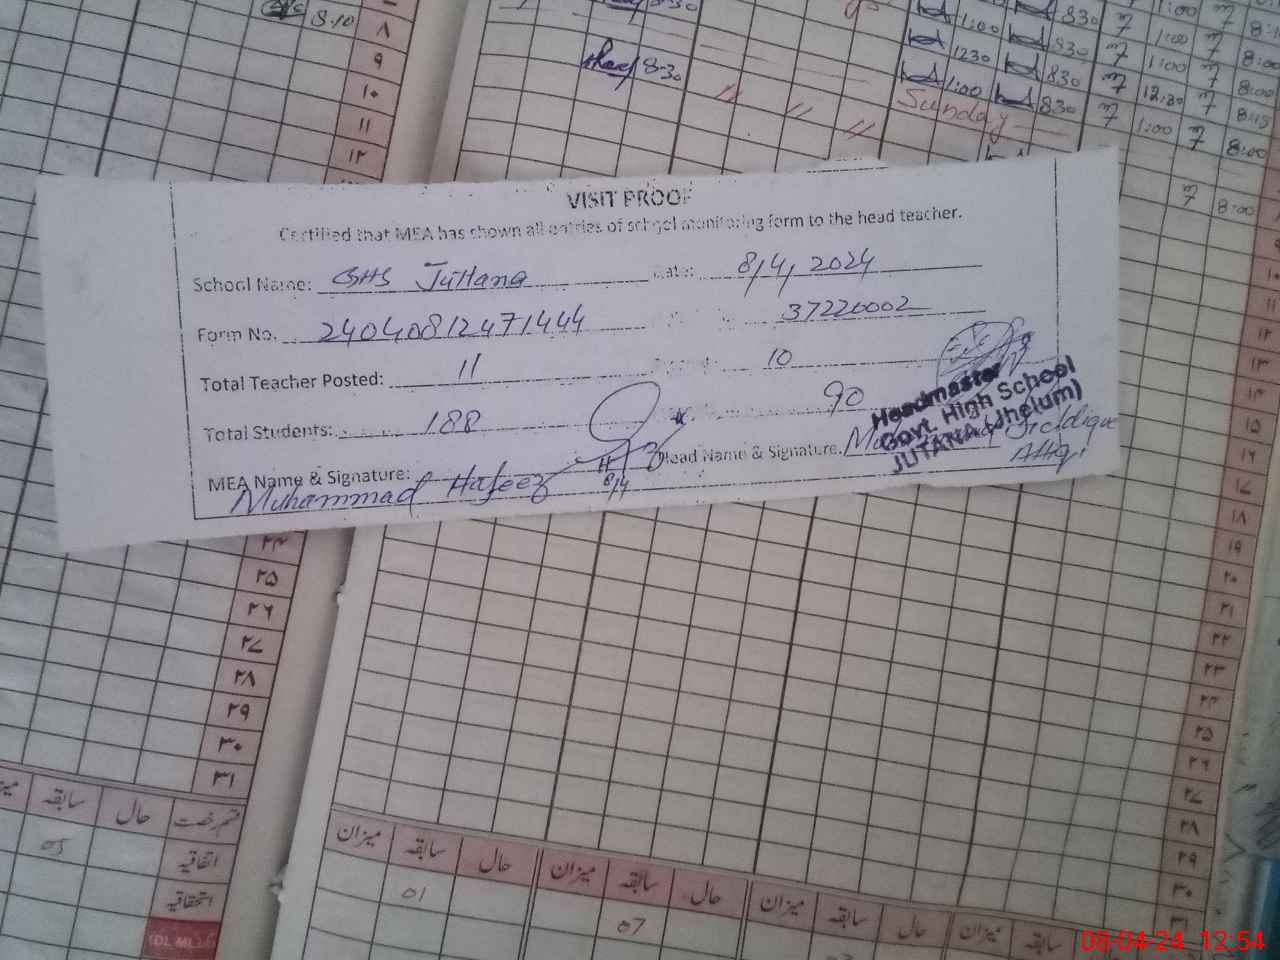 8:10
8-30
8-30
1:00 830 1:00
1230 830 1:00 8:00
1:00 830 12:30 8:00
Sunday 1:00 8:15
8:00
8:00
۸
۹
۱۰
۱۱
۱۲
VISIT PROOF
Certified that MEA has shown all entries of school monitoring form to the head teacher.
School Name: GHS Juttana Date: 8/4/2024
Form No. 24040812471444 37220002
Total Teacher Posted: 11 10
Total Students: 188 90
MEA Name & Signature: Head Name & Signature.
Muhammad Hafeez 8/4
Siddique
Headmaster
Govt. High School
JUTANA (Jhelum)
۲۴
۲۵
۲۶
۲۷
۲۸
۲۹
۳۰
۳۱
سابقہ حال قسم رخصت
05 اتفاقیہ
استحقاقیہ
۱۲
۱۳
۱۴
۱۵
۱۶
۱۷
۱۸
۱۹
۲۰
۲۱
۲۲
۲۳
۲۴
۲۵
۲۶
۲۷
۲۸
۲۹
۳۰
۳۱
میزان سابقہ حال میزان سابقہ حال میزان سابقہ حال میزان سابقہ
01 07
08-04-24 12:54